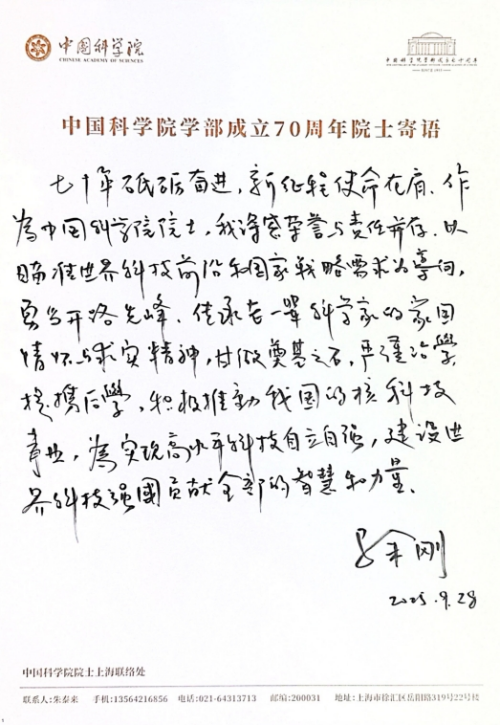 中国科学院
CHINESE ACADEMY OF SCIENCES
中国科学院学部成立70周年院士寄语
七十年砥砺奋进，新征程使命在肩。作
為中国科学院院士，我深感荣誉与责任并存。以
瞄准世界科技前沿和国家战略需求为導向，
勇当开路先峰。传承老一辈科学家的家国
情怀与求实精神，甘做奠基之石，严谨治學，
提携后學，积极推動我国的核科技
事业，為实现高水平科技自立自强，建设世
界科技强國贡献全部的智慧和力量。
刚
2025.9.28
中国科学院院士上海联络处
联系人:朱泰来 手机:13564216856 电话:021-64313713 邮编:200031 地址:上海市徐汇区岳阳路319号22号楼